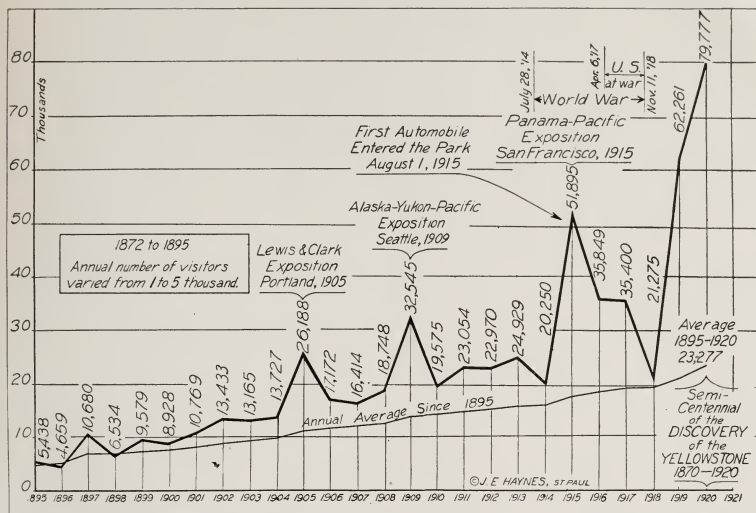 80
70
60
50
40
30
20
10
0
Thousands
1872 to 1895
Annual number of visitors
varied from 1 to 5 thousand.
Lewis & Clark
Exposition
Portland, 1905
Alaska-Yukon-Pacific
Exposition
Seattle, 1909
First Automobile
Entered the Park
August 1, 1915
Panama-Pacific
Exposition
San Francisco, 1915
July 28, '14
World War
Apr. 6, 17
U. S.
at war
Nov. 11, '18
5,438
4,659
10,680
6,534
9,579
8,928
10,769
13,433
13,165
13,727
26,188
17,172
16,414
18,748
32,545
19,575
23,054
22,970
24,929
20,250
51,895
35,849
35,400
21,275
62,261
79,777
Annual Average Since 1895
Average
1895-1920
23,277
Semi-
Centennial
of the
DISCOVERY
of the
YELLOWSTONE
1870-1920
© J. E. HAYNES, ST PAUL
1895 1896 1897 1898 1899 1900 1901 1902 1903 1904 1905 1906 1907 1908 1909 1910 1911 1912 1913 1914 1915 1916 1917 1918 1919 1920 1921